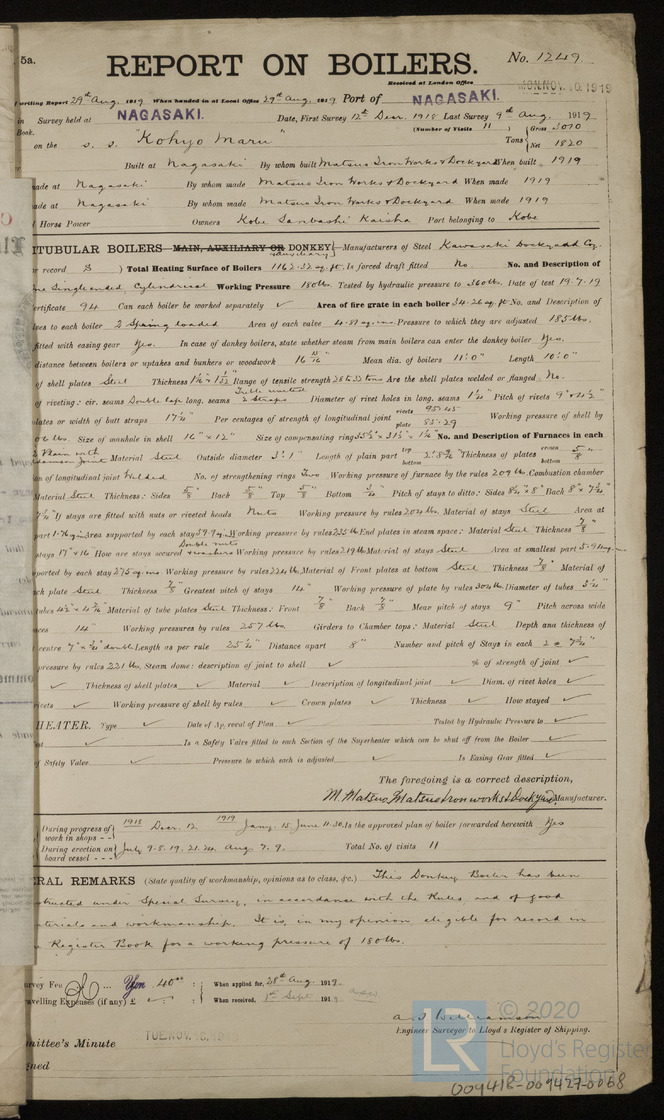 5a.
REPORT ON BOILERS.
No. 1249
Received at London Office MON. NOV. 10. 1919
writing Report 29th Aug. 1919 When handed in at Local Office 29th Aug. 1919 Port of NAGASAKI.
in Survey held at NAGASAKI. Date, First Survey 12th Decr. 1918 Last Survey 9th Aug. 1919
Book. (Number of Visits 11)
on the s. s. "Kohyo Maru" Tons { Gross 3070 Net 1820
Built at Nagasaki By whom built Matsuo Iron Works & Dockyard When built 1919
made at Nagasaki By whom made Matsuo Iron Works & Dockyard When made 1919
made at Nagasaki By whom made Matsuo Iron Works & Dockyard When made 1919
Horse Power Owners Kobe Sanbashi Kaisha Port belonging to Kobe
ITUBULAR BOILERS MAIN, AUXILIARY OR DONKEY Manufacturers of Steel Kawasaki Dockyard Coy.
r record B ) Total Heating Surface of Boilers 1162.32 sq. ft. Is forced draft fitted No. No. and Description of
Single ended Cylindrical Working Pressure 180 lbs. Tested by hydraulic pressure to 360 lbs. Date of test 19.7.19
ertificate 94 Can each boiler be worked separately ✓ Area of fire grate in each boiler 34.26 sq. ft. No. and Description of
ves to each boiler 2 Spring loaded Area of each valve 4.81 Pressure to which they are adjusted 185 lbs.
fitted with easing gear Yes. In case of donkey boilers, state whether steam from main boilers can enter the donkey boiler Yes.
distance between boilers or uptakes and bunkers or woodwork 16 Mean dia. of boilers 11'.0" Length 10'.0"
of shell plates Steel Thickness Range of tensile strength 28 to 32 tons Are the shell plates welded or flanged No.
of riveting: cir. seams Double lap long. seams 2 Straps Diameter of rivet holes in long. seams 1¼" Pitch of rivets
plates or width of butt straps 17¼" Per centages of strength of longitudinal joint rivets 95.45 plate 85.29 Working pressure of shell by
Size of manhole in shell 16" × 12" Size of compensating ring No. and Description of Furnaces in each
2 Plain with Material Steel Outside diameter 3'.1" Length of plain part top bottom Thickness of plates crown bottom 5/8"
on of longitudinal joint Welded No. of strengthening rings Two Working pressure of furnace by the rules 209 lbs. Combustion chamber
Material Steel Thickness: Sides 5/8" Back 5/8" Top 5/8" Bottom ¾" Pitch of stays to ditto: Sides Back
If stays are fitted with nuts or riveted heads Nuts Working pressure by rules 204 lbs. Material of stays Steel Area at
part Area supported by each stay Working pressure by rules 235 lbs End plates in steam space: Material Steel Thickness 7/8"
stays 17" × 16 How are stays secured Double nuts & washers Working pressure by rules 219 lbs Material of stays Steel Area at smallest part
pported by each stay 275 Working pressure by rules 224 lbs. Material of Front plates at bottom Steel Thickness 7/8" Material of
ck plate Steel Thickness 7/8" Greatest pitch of stays 14" Working pressure of plate by rules 304 lbs. Diameter of tubes 3¼"
tubes Material of tube plates Steel Thickness: Front 7/8" Back 7/8" Mean pitch of stays 9" Pitch across wide
ces 14" Working pressures by rules 257 lbs. Girders to Chamber tops: Material Steel Depth and thickness of
centre double Length as per rule 25¼" Distance apart 8" Number and pitch of Stays in each 2 @ 7¾"
pressure by rules 221 lbs. Steam dome: description of joint to shell ✓ % of strength of joint ✓
✓ Thickness of shell plates ✓ Material ✓ Description of longitudinal joint ✓ Diam. of rivet holes ✓
rivets ✓ Working pressure of shell by rules ✓ Crown plates ✓ Thickness ✓ How stayed ✓
HEATER. Type ✓ Date of Approval of Plan ✓ Tested by Hydraulic Pressure to ✓
✓ Is a Safety Valve fitted to each Section of the Superheater which can be shut off from the Boiler ✓
of Safety Valve ✓ Pressure to which each is adjusted ✓ Is Easing Gear fitted ✓
The foregoing is a correct description,
M. Matsuo, Matsuo Iron works & Dockyard Manufacturer.
During progress of work in shops - - 1918 Decr. 12 1919 Jany. 15 June 11.30. Is the approved plan of boiler forwarded herewith Yes
During erection on board vessel - - - July 9.8.19.21.24 Aug. 7.9. Total No. of visits 11
ERAL REMARKS (State quality of workmanship, opinions as to class, &c.) This Donkey Boiler has been
structed under Special Survey, in accordance with the Rules, and of good
terials and workmanship. It is, in my opinion eligible for record in
Register Book for a working pressure of 180 lbs.
urvey Fee ... Yen 40.00 : When applied for, 28th Aug. 1919.
avelling Expenses (if any) £ ✓ : When received, 1st Sept. 1919
Engineer Surveyor to Lloyd's Register of Shipping.
mmittee's Minute TUE. NOV. 18. 1919
gned
© 2020
LR
Lloyd's Register
Foundation
009418-009427-0068